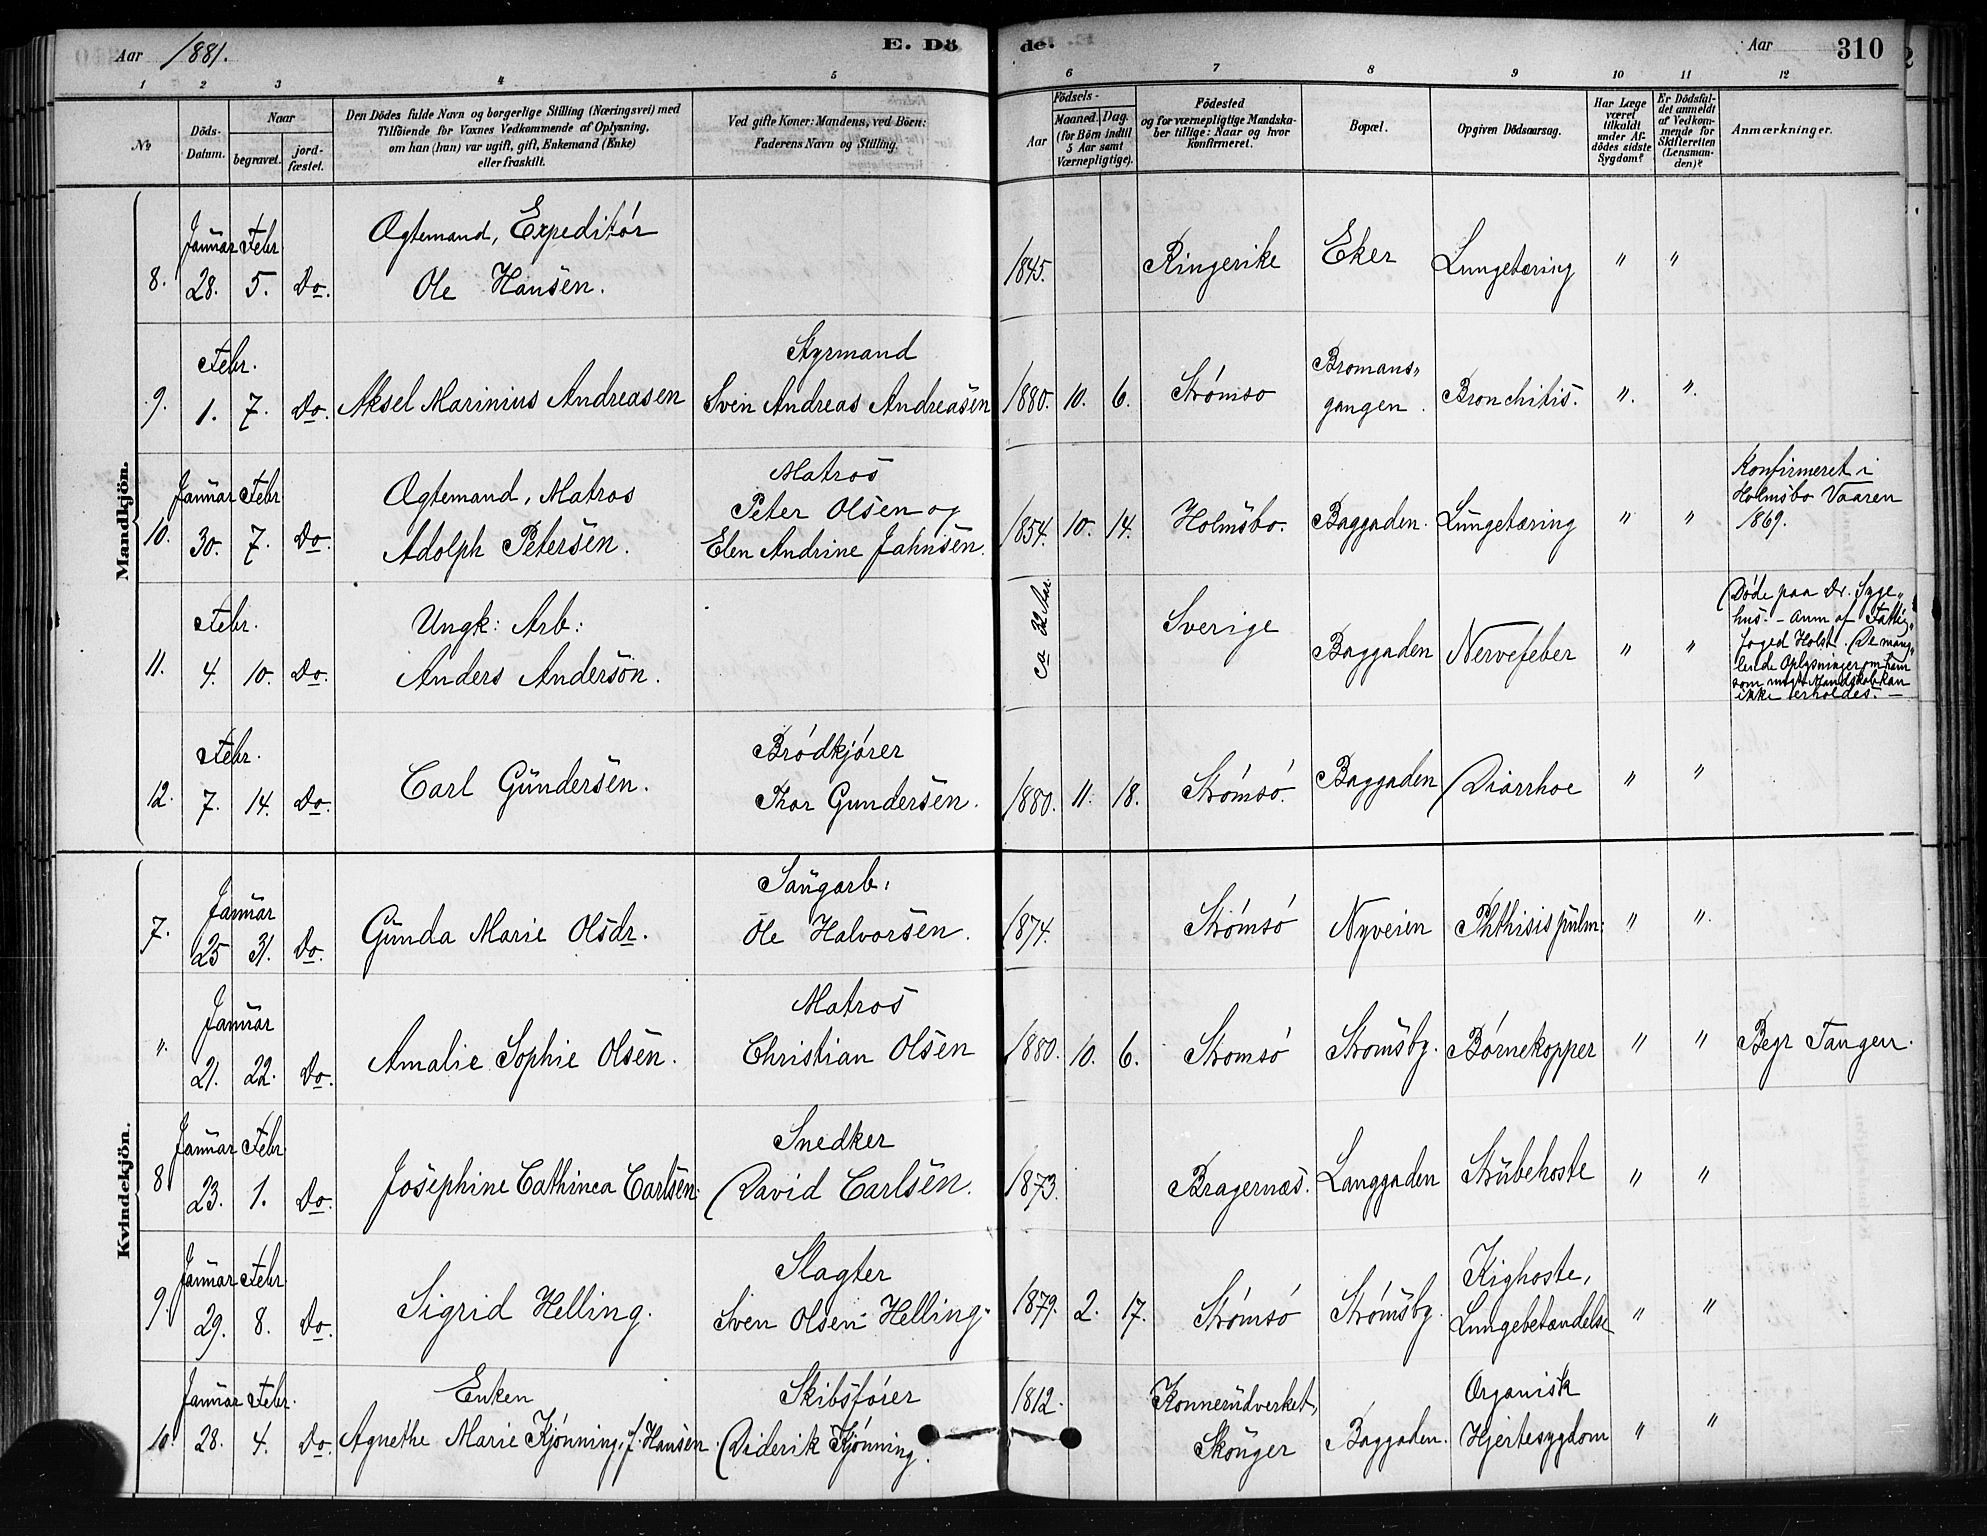 Aar 1881. E. Dö de. Aar 310
1 2 3 4 5 6 7 8 9 10 11 12
No
Döds-
Datum.
Naar
begravet.
jord-
fæstet.
Den Dödes fulde Navn og borgerlige Stilling (Næringsvei) med
Tilföiende for Voxnes Vedkommende af Oplysning,
om han (hun) var ugift, gift, Enkemand (Enke)
eller fraskilt.
Ved gifte Koner: Mandens, ved Börn:
Faderens Navn og Stilling.
Födsels-
Aar
Maaned. Dag.
(for Börn indtil
5 Aar samt
Værnepligtige).
Födested
og for værnepligtige Mandska-
ber tillige: Naar og hvor
konfirmeret.
Bopæl.
Opgiven Dödsaarsag.
Har Læge
været
tilkaldt
under Af-
dödes sidste
Sygdom?
Er Dödsfal-
det anmeldt
af Vedkom-
mende for
Skifteretten
(Lensman-
den)?
Anmærkninger.
Mandkjön.
Januar Febr Ægtemand, Expeditør
8. 28. 5. Do. Ole Hansen. 1845. Ringerike Eker Lungetæring " "
Febr. Styrmand Bromans„
9. 1. 7. Do. Aksel Marinius Andreasen Sven Andreas Andreasen 1880. 10. 6. Strømsø gangen. Bronchitis. " "
Januar Febr Ægtemand, Matros Matros
Peter Olsen og
10. 30. 7. Do. Adolph Petersen. Elen Andrine Jahnsen. 1854. 10. 14. Holmsbo. Baggaden. Lungetæring " "
Konfirmeret i
Holmsbo Vaaren
1869.
Febr. Ungk: Arb:
11. 4. 10. Do. Anders Anderson. ca 32 Aar. Sverige Baggaden Nervefeber " "
Døde paa Dr. Syge„
hus. - Anm af Fattig„
foged Holst. De mang„
lende Oplysninger om ham
som Mandskab kan
ikke erholdes. -
Febr. Brødkjører
12. 7. 14. Do. Carl Gundersen. Thor Gundersen. 1880. 11. 18. Strømsø. Baggaden Diarrhoe " "
Kvindekjön.
Januar Saugarb.
7. 25 31. Do. Gunda Marie Olsdr. Ole Halvorsen. 1874. Strømsø Nyveien Phthisis pulm: " "
Januar Matros
". 21. 22. Do. Amalie Sophie Olsen. Christian Olsen 1880. 10. 6. Strømsø Strømsby. Børnekopper " " Begr Tangen.
Januar Febr Snedker
8 23. 1. Do. Josephine Cathinca Carlsen. David Carlsen. 1873. Bragernæs. Langgaden Strubehoste " "
Januar Febr Slagter Kighoste,
9. 29. 8. Do. Sigrid Helling. Sven Olsen Helling. 1879. 2. 17. Strømsø Strømsby. Lungebetændelse " "
Januar Febr. Enken Skibsfører 1812. Konnerudverket, Organisk
10. 28. 4. Do. Agnethe Marie Kjønning, f. Hansen. Diderik Kjønning. Skouger Baggaden. Hjertesygdom " "